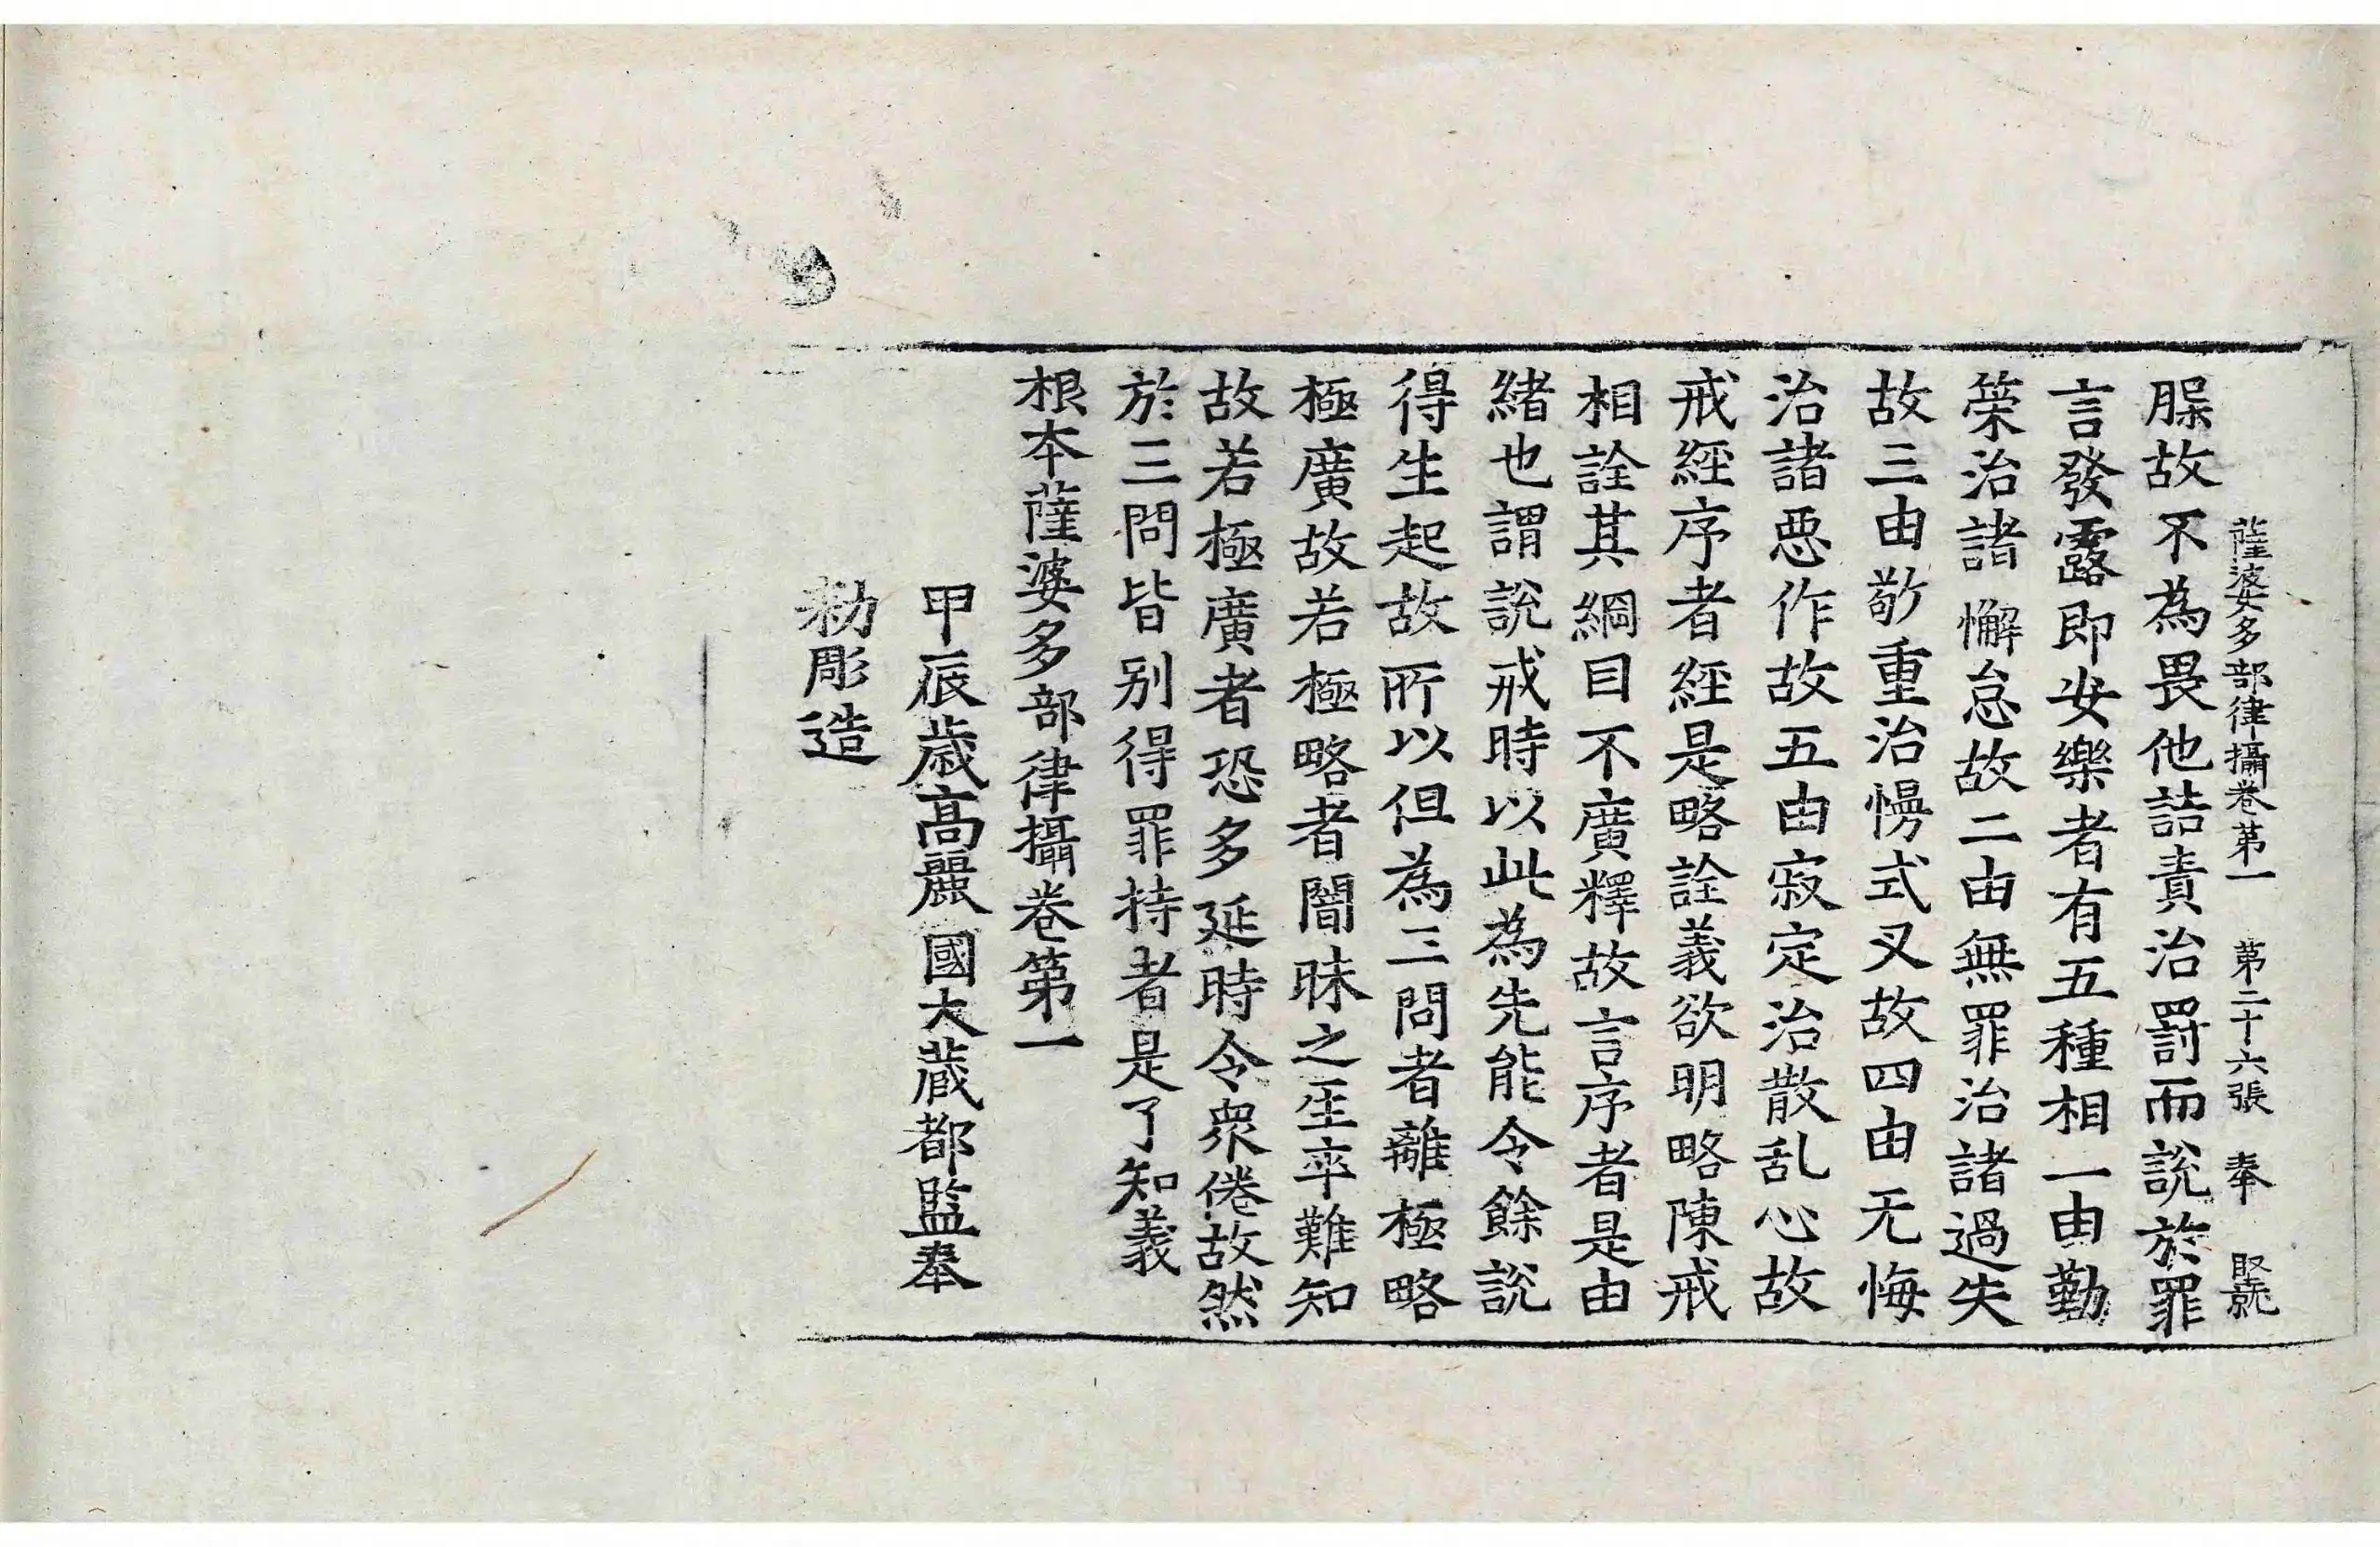 薩婆多部律攝卷第一　第二十六張　奉　堅就
腂故不為畏他詰責治罰而說於罪
言發露即安樂者有五種相一由勤
策治諸懈怠故二由無罪治諸過失
故三由敬重治慢式叉故四由无悔
治諸惡作故五由寂定治散乱心故
戒經序者經是略詮義欲明略陳戒
相詮其綱目不廣釋故言序者是由
緒也謂說戒時以此為先能令餘說
得生起故所以但為三問者離極略
極廣故若極略者闇昧之坐率難知
故若極廣者恐多延時令衆倦故然
於三問皆別得罪持者是了知義
根本薩婆多部律攝卷第一
甲辰歲高麗國大藏都監奉
勑彫造